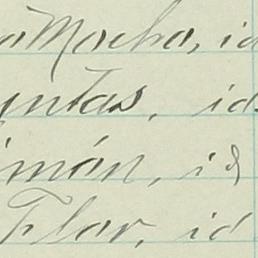 a Mocha, id
untas, id
imón, id
Flor, id